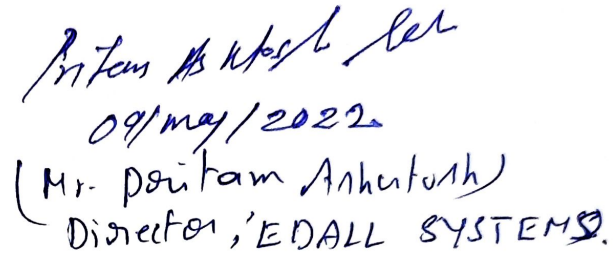 Pritam Ashutosh
09/may/2022
(Mr. Pritam Ashutosh)
Director, EDALL SYSTEMS.